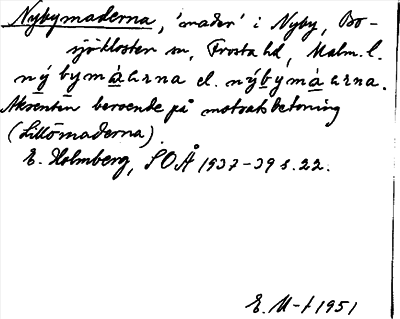 Nybymaderna, 'mader' i Nyby, Bo-
sjökloster sn, Frosta hd, Malm. l.
ný bymáderna el. nýbymáderna.
Aksenten beroende på motsatsbetoning
(Lillömaderna).
E. Holmberg, SOÅ 1937-39 s. 22.
E. M-t 1951